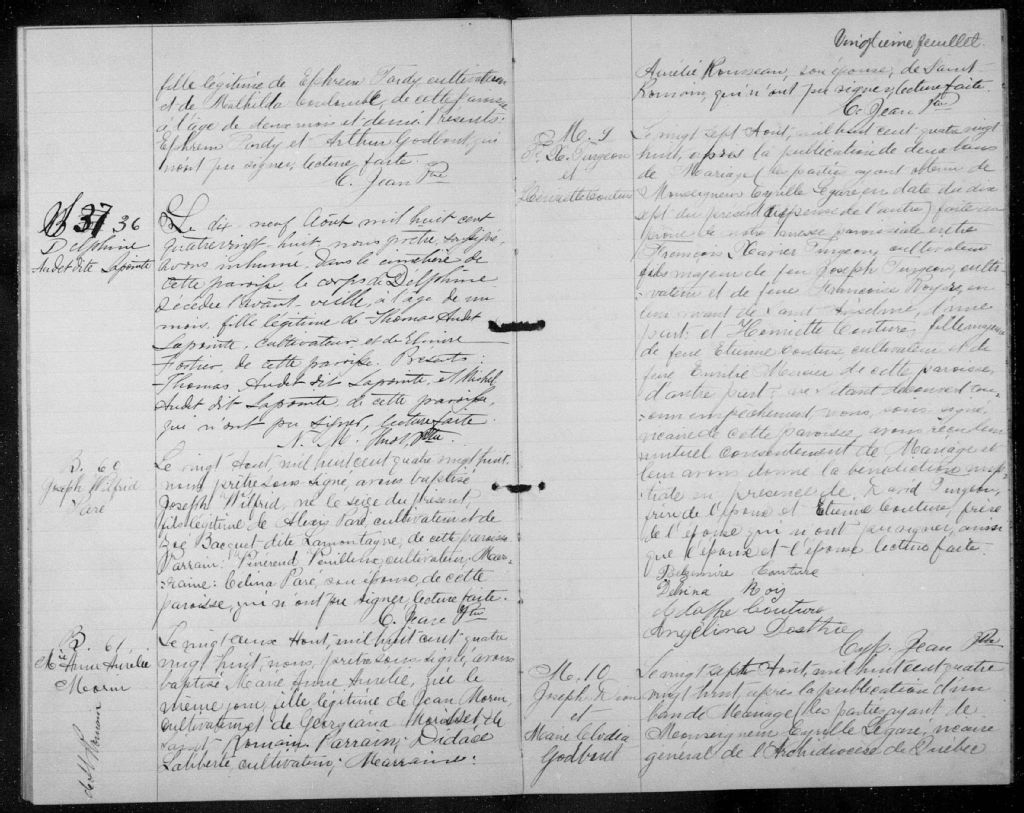 fille légitime de Ephrem Tardy cultivateur
et de Mathilda Couturelle, de cette paroisse
à l'âge de deux mois et demi. Présents:
Ephrem Tardy et Arthur Godbout qui
n'ont pu signer, lecture faite.
C. Jean Ptre
S 37 36
Delphine
Audet dite Lapointe
Le dix-neuf Août mil huit cent
quatrevingt-huit, nous prêtre, soussigné
avons inhumé dans le cimetière de
cette paroisse, le corps de Delphine
décédée l'avant-veille, à l'âge de un
mois, fille légitime de Thomas Audet
Lapointe, cultivateur, et de Elmire
Fortier, de cette paroisse. Présents:
Thomas Audet dit Lapointe, et Michel
Audet dit Lapointe, de cette paroisse,
qui n'ont pu signer, lecture faite.
N. M. Ptre
B. 60
Joseph Wilfrid
Paré
Le vingt Aout, mil huit cent quatre vingt huit,
nous prêtre sous signé, avons baptisé
Joseph Wilfrid, né le seize du présent,
fils légitime de Alexis Paré, cultivateur et de
Zoé Bacquet dite Lamontagne, de cette paroisse
Parrain: Pouilleux, cultivateur, Mar-
raine: Célina Paré, son épouse, de cette
paroisse, qui n'ont pu signer, lecture faite.
C. Jean Ptre
B. 61
Mie Anne Aurélie
Morin
de St Romain
Le vingt deux Aout, mil huit cent quatre
vingt huit, nous, prêtre sous signé, avons
baptisé Marie Anne Aurélie, née le
même jour, fille légitime de Jean Morin,
cultivateur et de Georgiana Morisset de
Saint-Romain. Parrain; Didace
Laliberté, cultivateur; Marraine:
Vingtième feuillet.
Aurélie Rousseau, son épouse, de Saint-
Romain, qui n'ont pu signer, lecture faite.
C. Jean Ptre
M. 9
F. X. Turgeon
et
Henriette Couture
Le vingt sept Aout, mil huit cent quatre vingt
huit, après la publication de deux bans
de Mariage (les parties ayant obtenu de
Monseigneur Cyrille Légaré, en date du dix
sept du présent dispense de l'autre) faite au
prône de notre messe paroissiale entre
François Xavier Turgeon, cultivateur
fils majeur de feu Joseph Turgeon, culti-
vateur et de feue Françoise Royer, en
leur vivant de Saint Anselme, d'une
part; et Henriette Couture, fille majeure
de feue Etienne Couture cultivateur et de
feue Emilie Mercier de cette paroisse,
d'autre part; ne s'étant découvert au-
cun empêchement, nous, sous signé,
vicaire de cette paroisse, avons reçu leur
mutuel consentement de Mariage et
leur avons donné la bénédiction nup-
tiale en présence de David Turgeon,
frère de l'époux et Etienne Couture, frère
de l'épouse qui n'ont pu signer, ainsi
que l'époux et l'épouse, lecture faite.
Couture
Délina Roy
Couture
Angélina
Cyp. Jean Ptre
M. 10
Joseph
et
Marie Clodia
Godbout
Le vingt sept Aout, mil huit cent quatre
vingt huit, après la publication d'un
ban de Mariage (les parties ayant de
Monseigneur Cyrille Légaré, vicaire
général de l'Archidiocèse de Québec